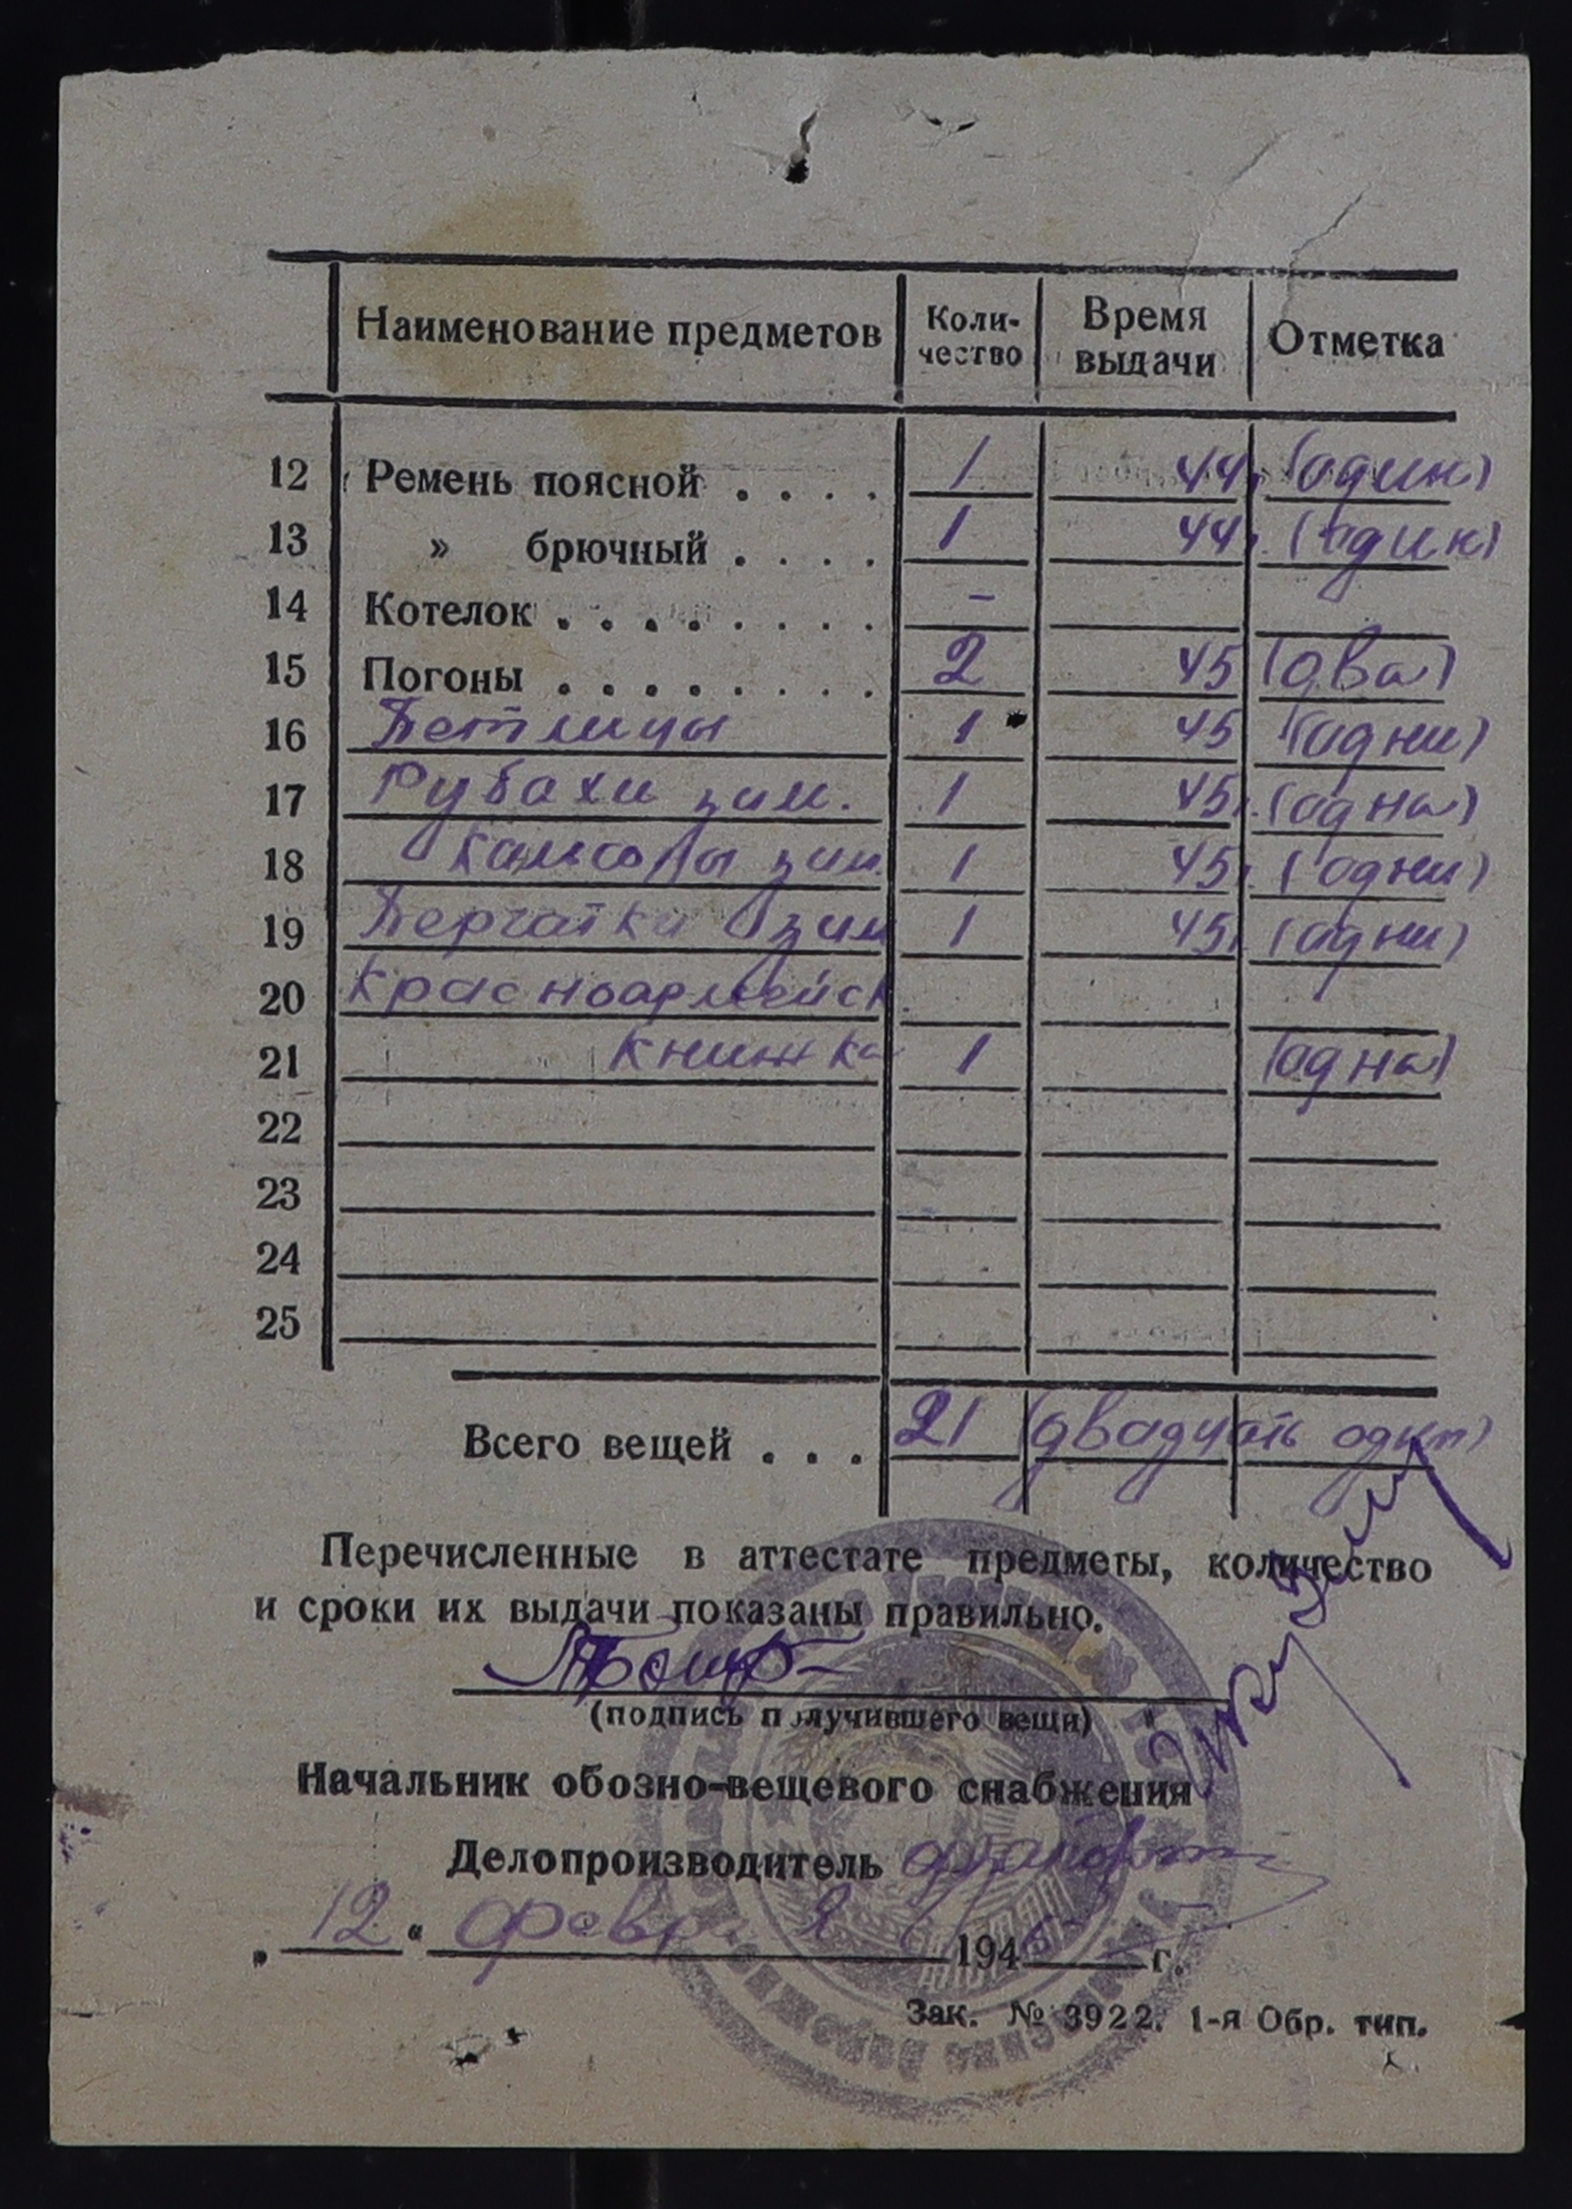 Наименование предметов Коли-чество Время выдачи Отметка
12 Ремень поясной . . . . 1 44г. (один)
13 » брючный . . . . 1 44г. (один)
14 Котелок . . . . . . . . –
15 Погоны . . . . . . . . . 2 45 (два)
16 Петлицы 1 45 (одни)
17 Рубахи зим. 1 45г. (одна)
18 Кальсоны зим. 1 45г. (одни)
19 Перчатки зим 1 45г. (одни)
20 Красноармейск.
21 книжка 1 (одна)
22
23
24
25
Всего вещей . . . 21 (двадцать один)
Перечисленные в аттестате предметы, количество
и сроки их выдачи показаны правильно.
(подпись получившего вещи)
Начальник обозно-вещевого снабжения
Делопроизводитель
„ 12 “ февр 194 г.
Зак. № 3922. 1-я Обр. тип.